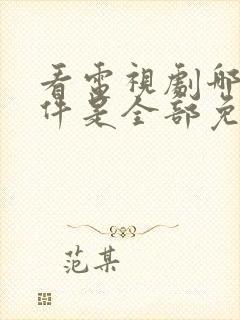 看電視劇哪
件是全部免
范某